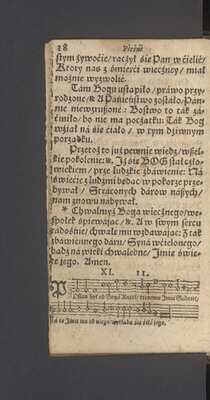 28 Pieśni
stym żywoćie/ raczył się Pan wćielić/
Ktory nas z śmierći wieczney/ miał
możnie wyzwolić.
Tam Bogu ustąpiło/ prawo przy-
rodzone/ A Panieństwo zostało/ Pán-
nie niewzruszone: Bostwo to tak zá-
ćmiło/ bo nie ma początku: Tak Bog
wźiął na się ćiáło/ w tym dźiwnym
porządku.
Przetoż to już pewnie wiedz/ wszel-
kie pokolenie: Iż się BOG stał czło-
wiekiem/ prze ludzkie zbáwienie: Ná
świećie z ludźmi będąc w pokorze prze-
bywał/ Stráconych dárow nászych/
nam znowu nábywał.
Chwalmyż Bogá wiecznego/ we-
społek śpiewając/ A w swym sercu
rádośnie/ chwałę mu wzdawając: Z tak
zbáwiennego dáru/ Syná wćielonego/
bądź ná wieki chwalebne/ Imię świę-
te jego. Amen.
XI. 11.
POsłan był od Bogá Anioł/